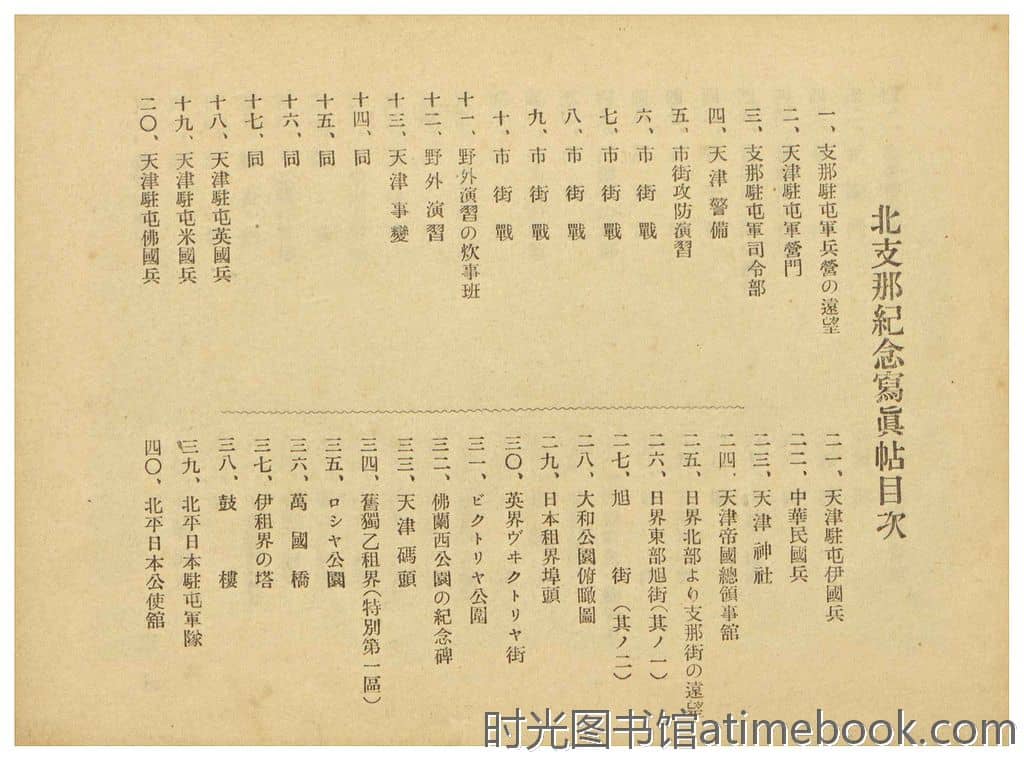 北支那紀念寫眞帖目次
一、支那駐屯軍兵營の遠望
二、天津駐屯軍營門
三、支那駐屯軍司令部
四、天津警備
五、市街攻防演習
六、市街戰
七、市街戰
八、市街戰
九、市街戰
十、市街戰
十一、野外演習の炊事班
十二、野外演習
十三、天津事變
十四、同
十五、同
十六、同
十七、同
十八、天津駐屯英國兵
十九、天津駐屯米國兵
二〇、天津駐屯佛國兵
二一、天津駐屯伊國兵
二二、中華民國兵
二三、天津神社
二四、天津帝國總領事舘
二五、日界北部より支那街の遠望
二六、日界東部旭街(其ノ一)
二七、旭街(其ノ二)
二八、大和公園俯瞰圖
二九、日本租界埠頭
三〇、英界ヴヰクトリヤ街
三一、ビクトリヤ公園
三二、佛蘭西公園の紀念碑
三三、天津碼頭
三四、舊獨乙租界(特別第一區)
三五、ロシヤ公園
三六、萬國橋
三七、伊租界の塔
三八、鼓樓
三九、北平日本駐屯軍隊
四〇、北平日本公使舘
时光图书馆atimebook.com